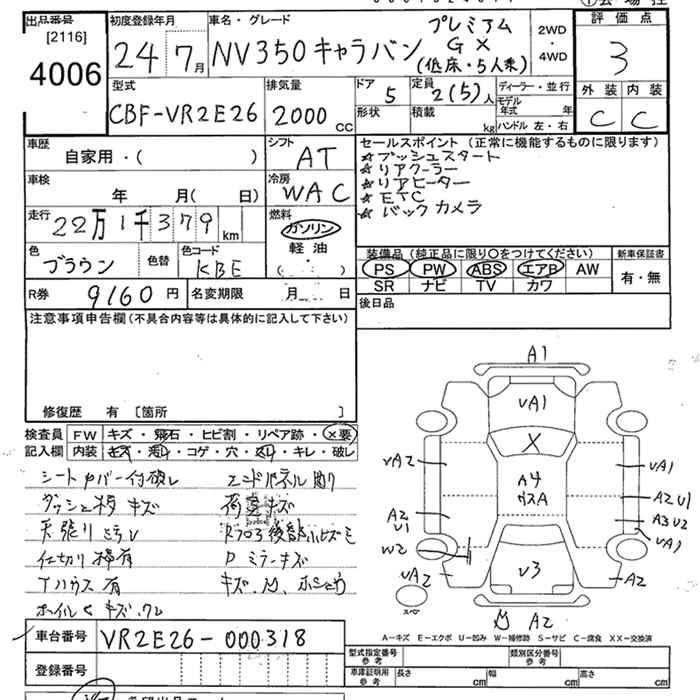 出品番号 [2116] 4006
初度登録年月 24年 7月
車名・グレード NV350キャラバン プレミアム GX (低床・5人乗)
2WD ・ 4WD
評価点 3
外装 C 内装 C
型式 CBF-VR2E26
排気量 2000 CC
ドア形状 5
定員 2(5)人
積載 kg
ディーラー・並行
モデル年式 年
ハンドル 左・右
車歴 自家用・( )
シフト AT
セールスポイント (正常に機能するものに限ります)
☆プッシュスタート
☆リアクーラー
☆リアヒーター
☆ETC
☆バックカメラ
車検 年 月( 日)
冷房 WAC
走行 22万1千379 km
燃料 ガソリン 軽油 ・ ( )
色 ブラウン 色替 色コード KBE
装備品 (純正品に限り○をつけてください)
PS PW ABS エアB AW
SR ナビ TV カワ
新車保証書 有・無
R券 9160円 名変期限 月 日
後日品
注意事項申告欄 (不具合内容等は具体的に記入して下さい)
修復歴 有 [箇所 ]
検査員記入欄
FW キズ・飛石・ヒビ割・リペア跡・×要
内装 キズ・汚レ・コゲ・穴・スレ・キレ・破レ
シートカバー付破レ
ダッシュ板キズ
天張りミラレ
仕切り棒有
Tハウス有
エンドパネル凹
荷室キズ
ホイルキズ
A1
VA1
X
VA2
VA1
A4
ガスA
A2 U1
A2 U1
A3 U2
VA1
W2
VA2
V3
A2
A2
スペア
車台番号 VR2E26-000318
登録番号
A-キズ E-エクボ U-凹み W-補修跡 S-サビ C-腐食 XX-交換済
型式指定番号 参考
類別区分番号 参考
車庫証明用 参考 長さ cm 幅 cm 高さ cm